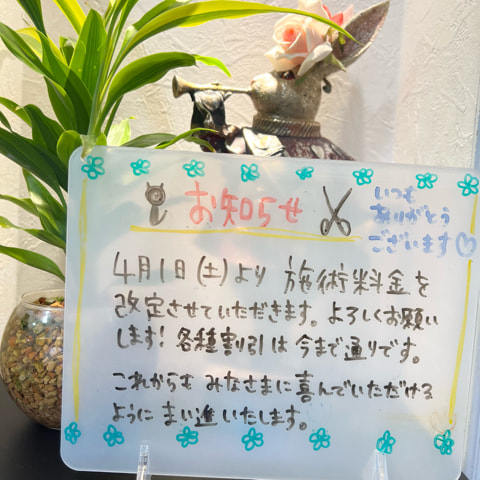 お知らせ
いつも
ありがとう
ございます♡
4月1日(土)より 施術料金を
改定させていただきます。よろしくお願い
します! 各種割引は今まで通りです。
これからも みなさまに喜んでいただける
ように まい進いたします。